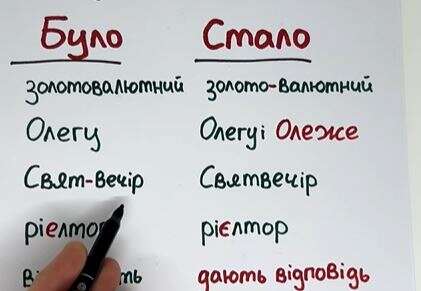 Було Стало
золотовалютний золото-валютний
Олегу Олегу і Олеже
Свят-вечір Святвечір
рієлтор
дають відповідь